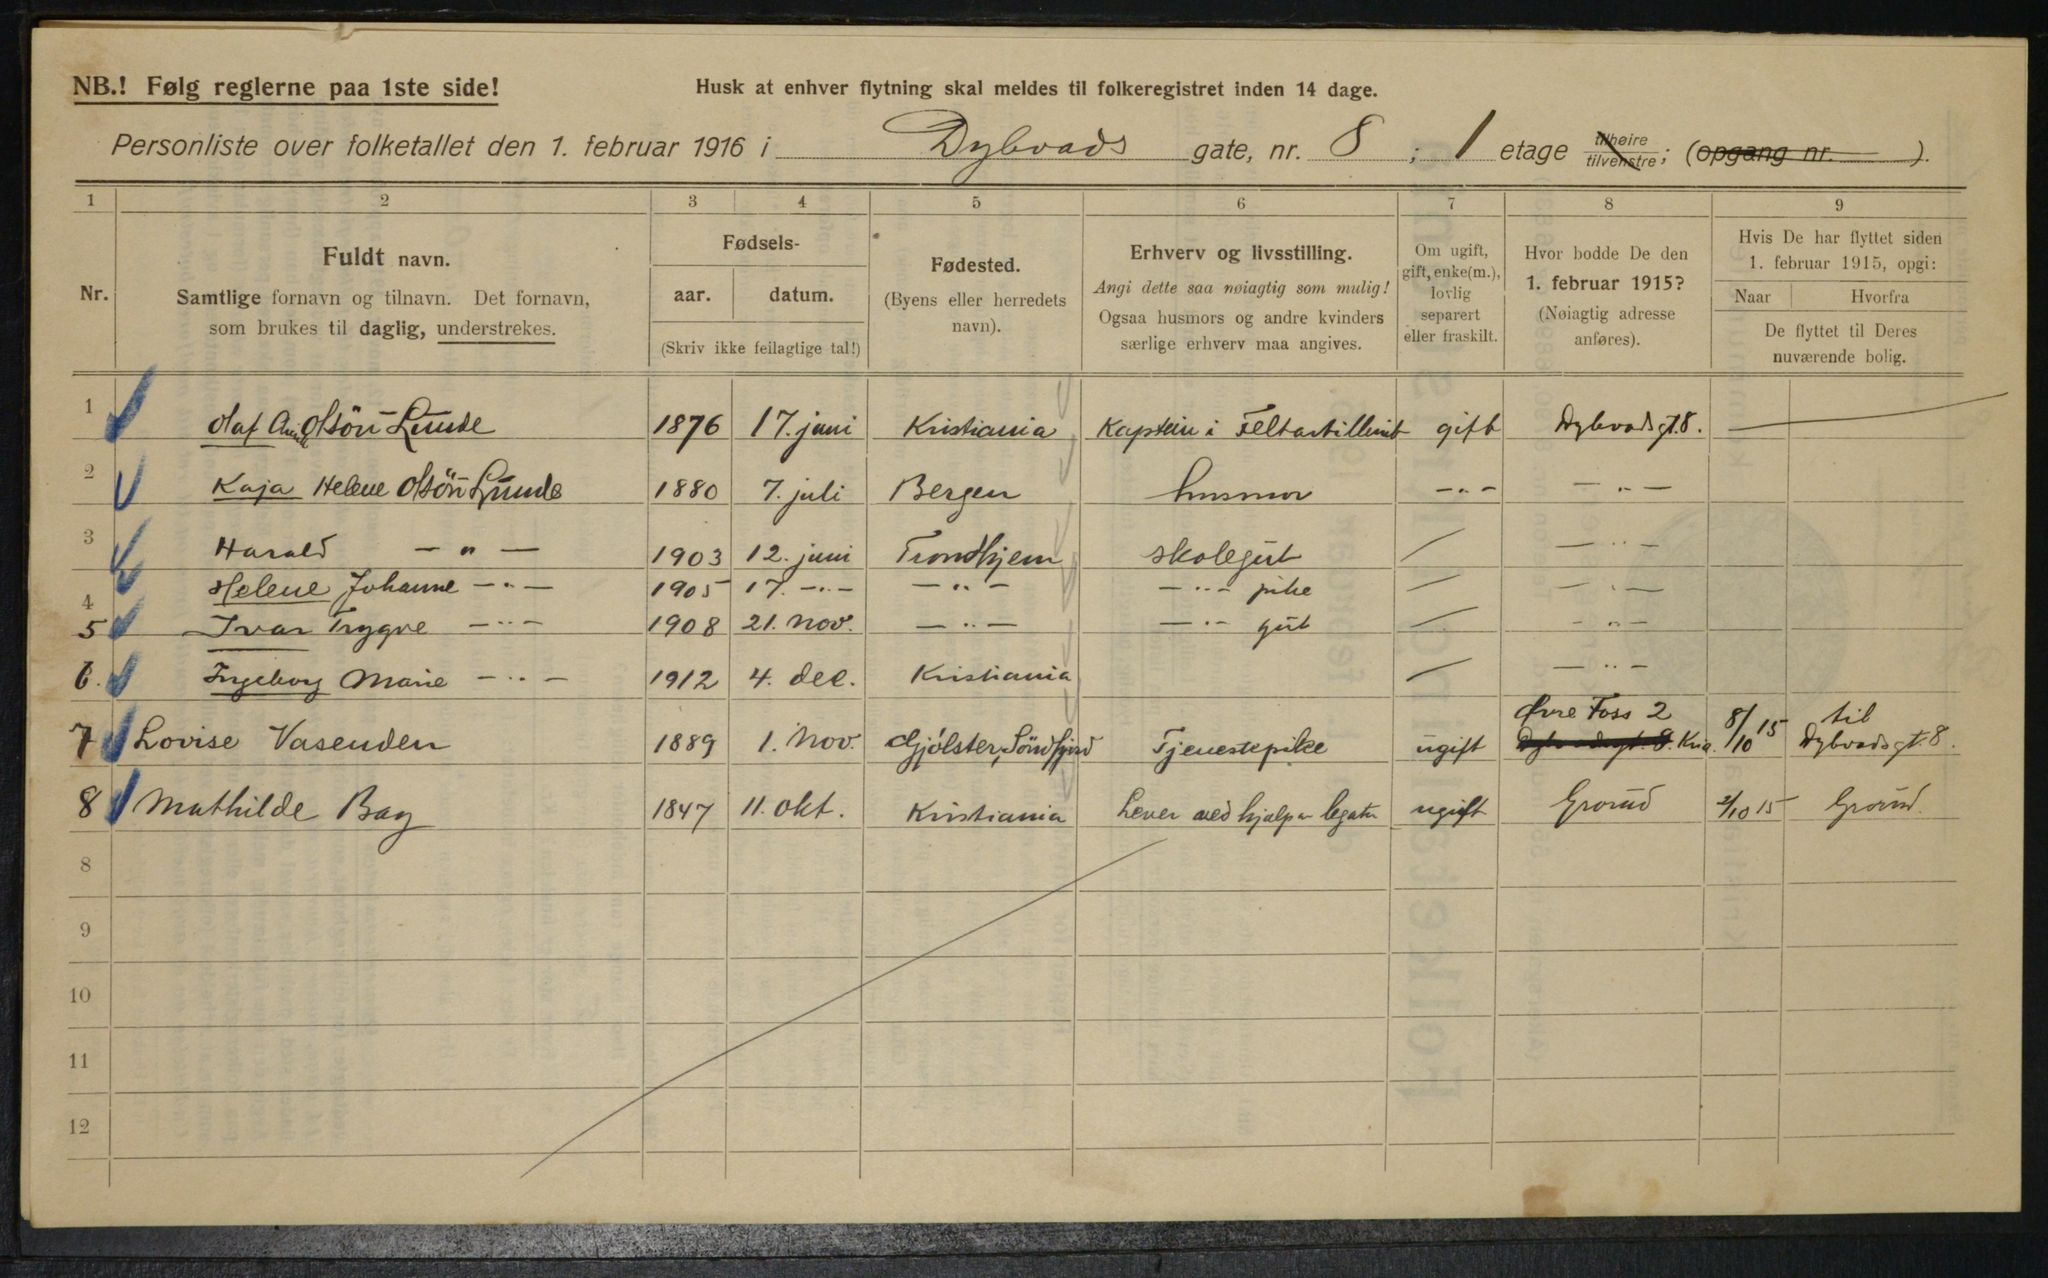 NB.! Følg reglerne paa 1ste side!
Husk at enhver flytning skal meldes til folkeregistret inden 14 dage.
Personliste over folketallet den 1. februar 1916 i Dybvads gate, nr. 8 ; 1 etage tilhøire tilvenstre; (opgang nr. ).
1 2 3 4 5 6 7 8 9
Nr.
Fuldt navn.
Samtlige fornavn og tilnavn. Det fornavn,
som brukes til daglig, understrekes.
Fødsels-
aar. datum.
(Skriv ikke feilagtige tal!)
Fødested.
(Byens eller herredets
navn).
Erhverv og livsstilling.
Angi dette saa nøiagtig som mulig!
Ogsaa husmors og andre kvinders
særlige erhverv maa angives.
Om ugift,
gift, enke(m.),
lovlig
separert
eller fraskilt.
Hvor bodde De den
1. februar 1915?
(Nøiagtig adresse
anføres).
Hvis De har flyttet siden
1. februar 1915, opgi:
Naar Hvorfra
De flyttet til Deres
nuværende bolig.
1 Olaf Olsön Lunde 1876 17. juni Kristiania Kaptein i gift Dybvadsgt. 8. —
2 Kaja Helene Olsön Lunde 1880 7. juli Bergen husmor —„— —„—
3 Harald —„— 1903 12. juni Trondhjem skolegut / —„—
4 Helene Johanne —„— 1905 17. —„— —„— —„— pike — —„—
5 Ivar Trygve —„— 1908 21. Nov. —„— —„— gut — —„—
6. Ingeborg Marie —„— 1912 4. dec. Kristiania — —„—
Øvre Foss 2 8/10 15 til
7 Lovise Vasenden 1889 1. Nov. Gjölster, Söndfjord Tjenestepike ugift Dybvadsgt. 8. Kria. Dybvadsgt. 8.
8 Mathilde Bay 1847 11. okt. Kristiania Lever ved hjælp av legater ugift Grorud 2/10 15 Grorud.
8
9
10
11
12